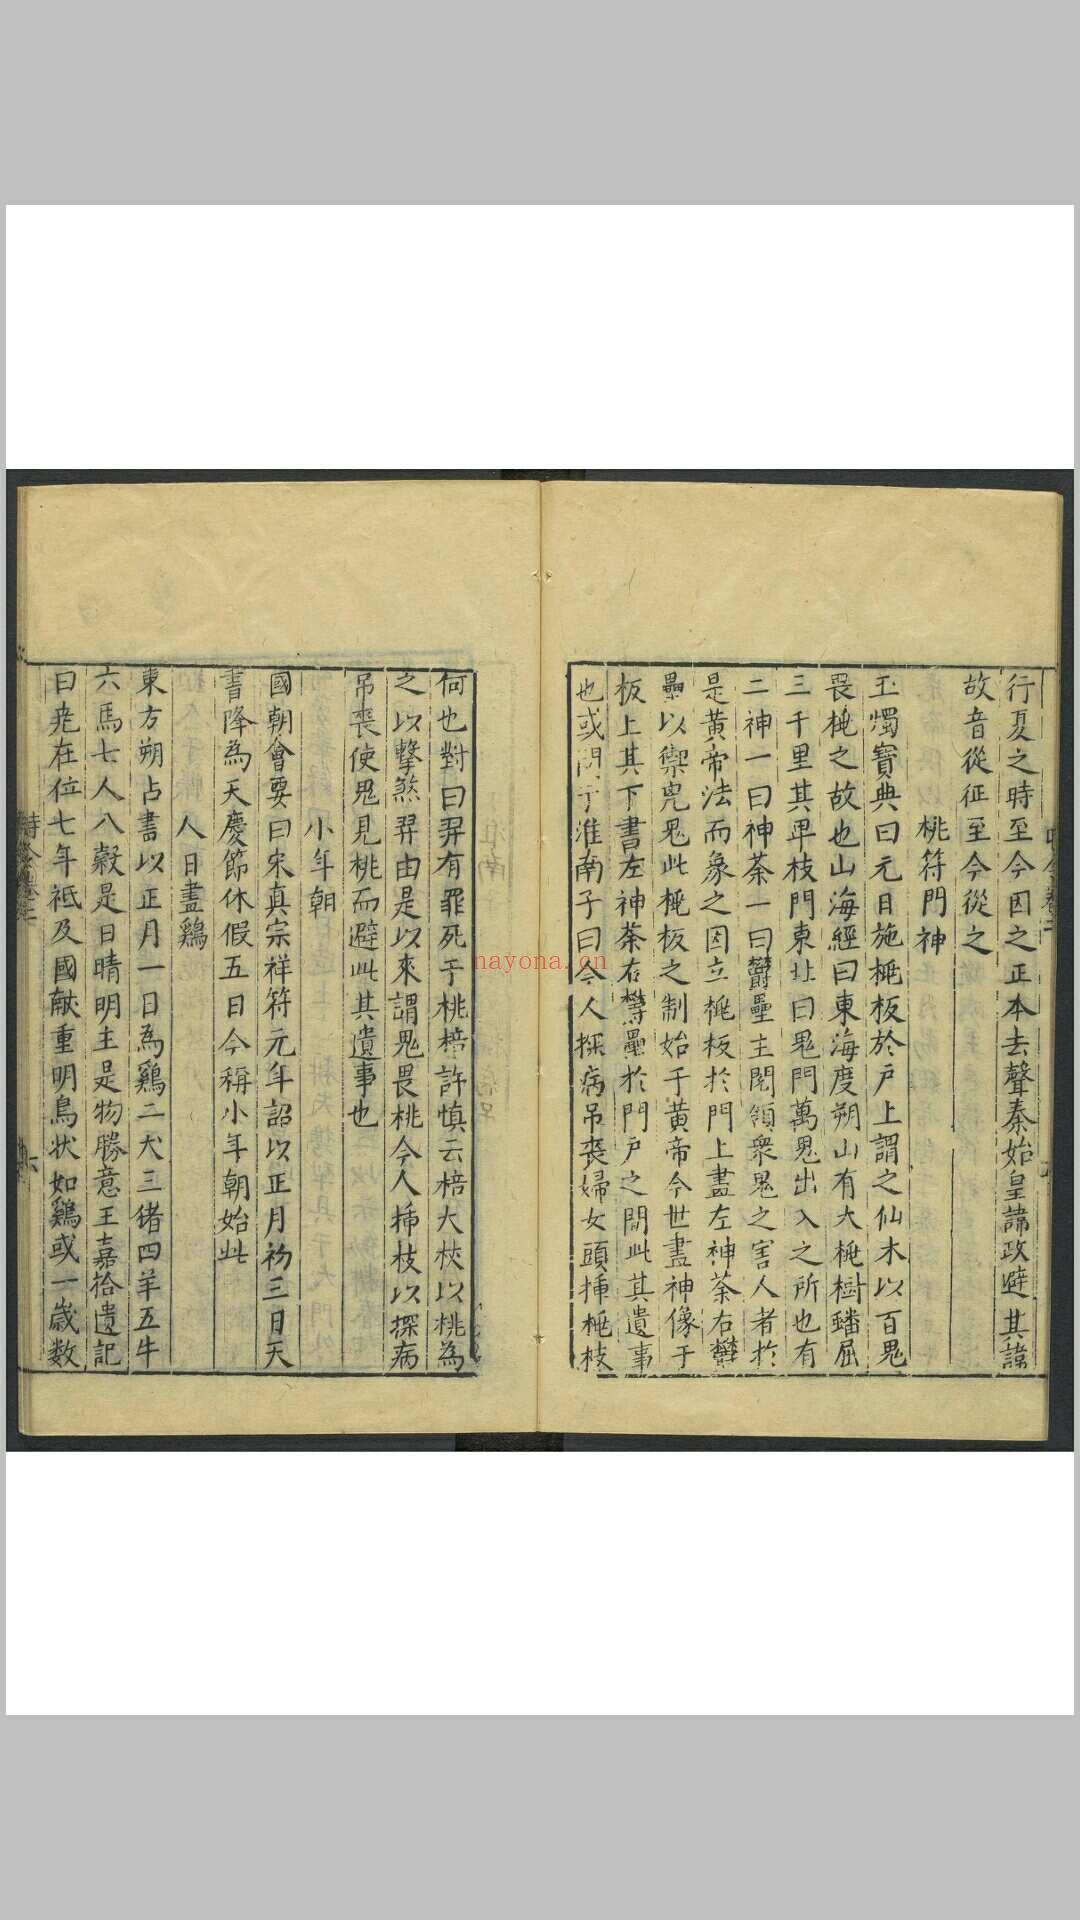 行夏之時至今因之正本去聲秦始皇諱政避其諱
故音從征至今從之
桃符門神
玉燭寶典曰元日施桃板於戶上謂之仙木以百鬼
畏桃之故也山海經曰東海度朔山有大桃樹蟠屈
三千里其卑枝門東北曰鬼門萬鬼出入之所也有
二神一曰神荼一曰欝壘主閱領衆鬼之害人者於
是黃帝法而象之因立桃板於門上畫左神荼右欝
壘以禦凶鬼此桃板之制始于黃帝今世畫神像于
板上其下書左神荼右欝壘於門戶之間此其遺事
也或問于淮南子曰今人探病吊喪婦女頭揷桃枝
何也對曰羿有罪死于桃棓許慎云棓大杖以桃為
之以擊煞羿由是以來謂鬼畏桃今人揷枝以探病
吊喪使鬼見桃而避此其遺事也
小年朝
國朝會要曰宋真宗祥符元年詔以正月初三日天
書降為天慶節休假五日今稱小年朝始此
人日畫鷄
東方朔占書以正月一日為鷄二犬三猪四羊五牛
六馬七人八穀是日晴明主是物勝意王嘉拾遺記
曰堯在位七年祗及國献重明鳥状如鷄或一歲数
nayona.cn